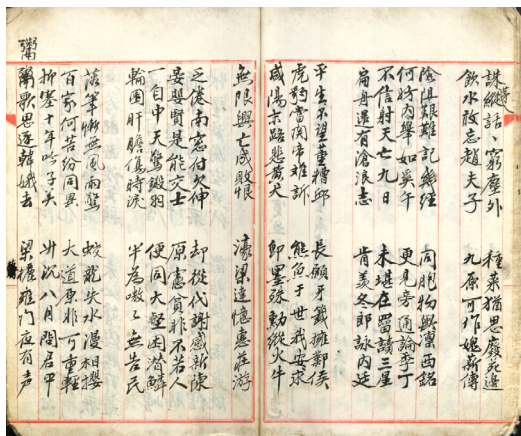 談縱話窮塵外 種菜猶思廢苑邊
飲水敢忘趙夫子 九原可作媿薪傳
險阻艱難記幾經 同胞物與闡西銘
何妨內舉如奚午 更見旁通論季丁
不信射天亡九日 未堪在罶讀三星
扁舟還有滄浪志 肯羨冬郎詠內廷
平生不望糟邱 長願牙籤擁鄴侯
虎狗當關啼難訓 熊魚于世我安求
咸陽路悲黃犬 即墨殊勳縱火牛
無限興亡成敗恨 濠梁遙憶惠莊游
乏倦南窗付欠伸 却從代謝感新陳
晏嬰賢是能交士 原憲貧非不若人
一自中天驚鎩羽 便同大壑困潛鱗
輪囷肝膽傷時淚 半為嗷〻無告民
落筆慚無風雨驚 蛟龍失水漫相攖
百家何苦紛同異 大道原非可重輕
抑塞十年吟子美 升沉八月問君平
鬻歌思逐韓娥去 梁欐雍門夜有声
鬻